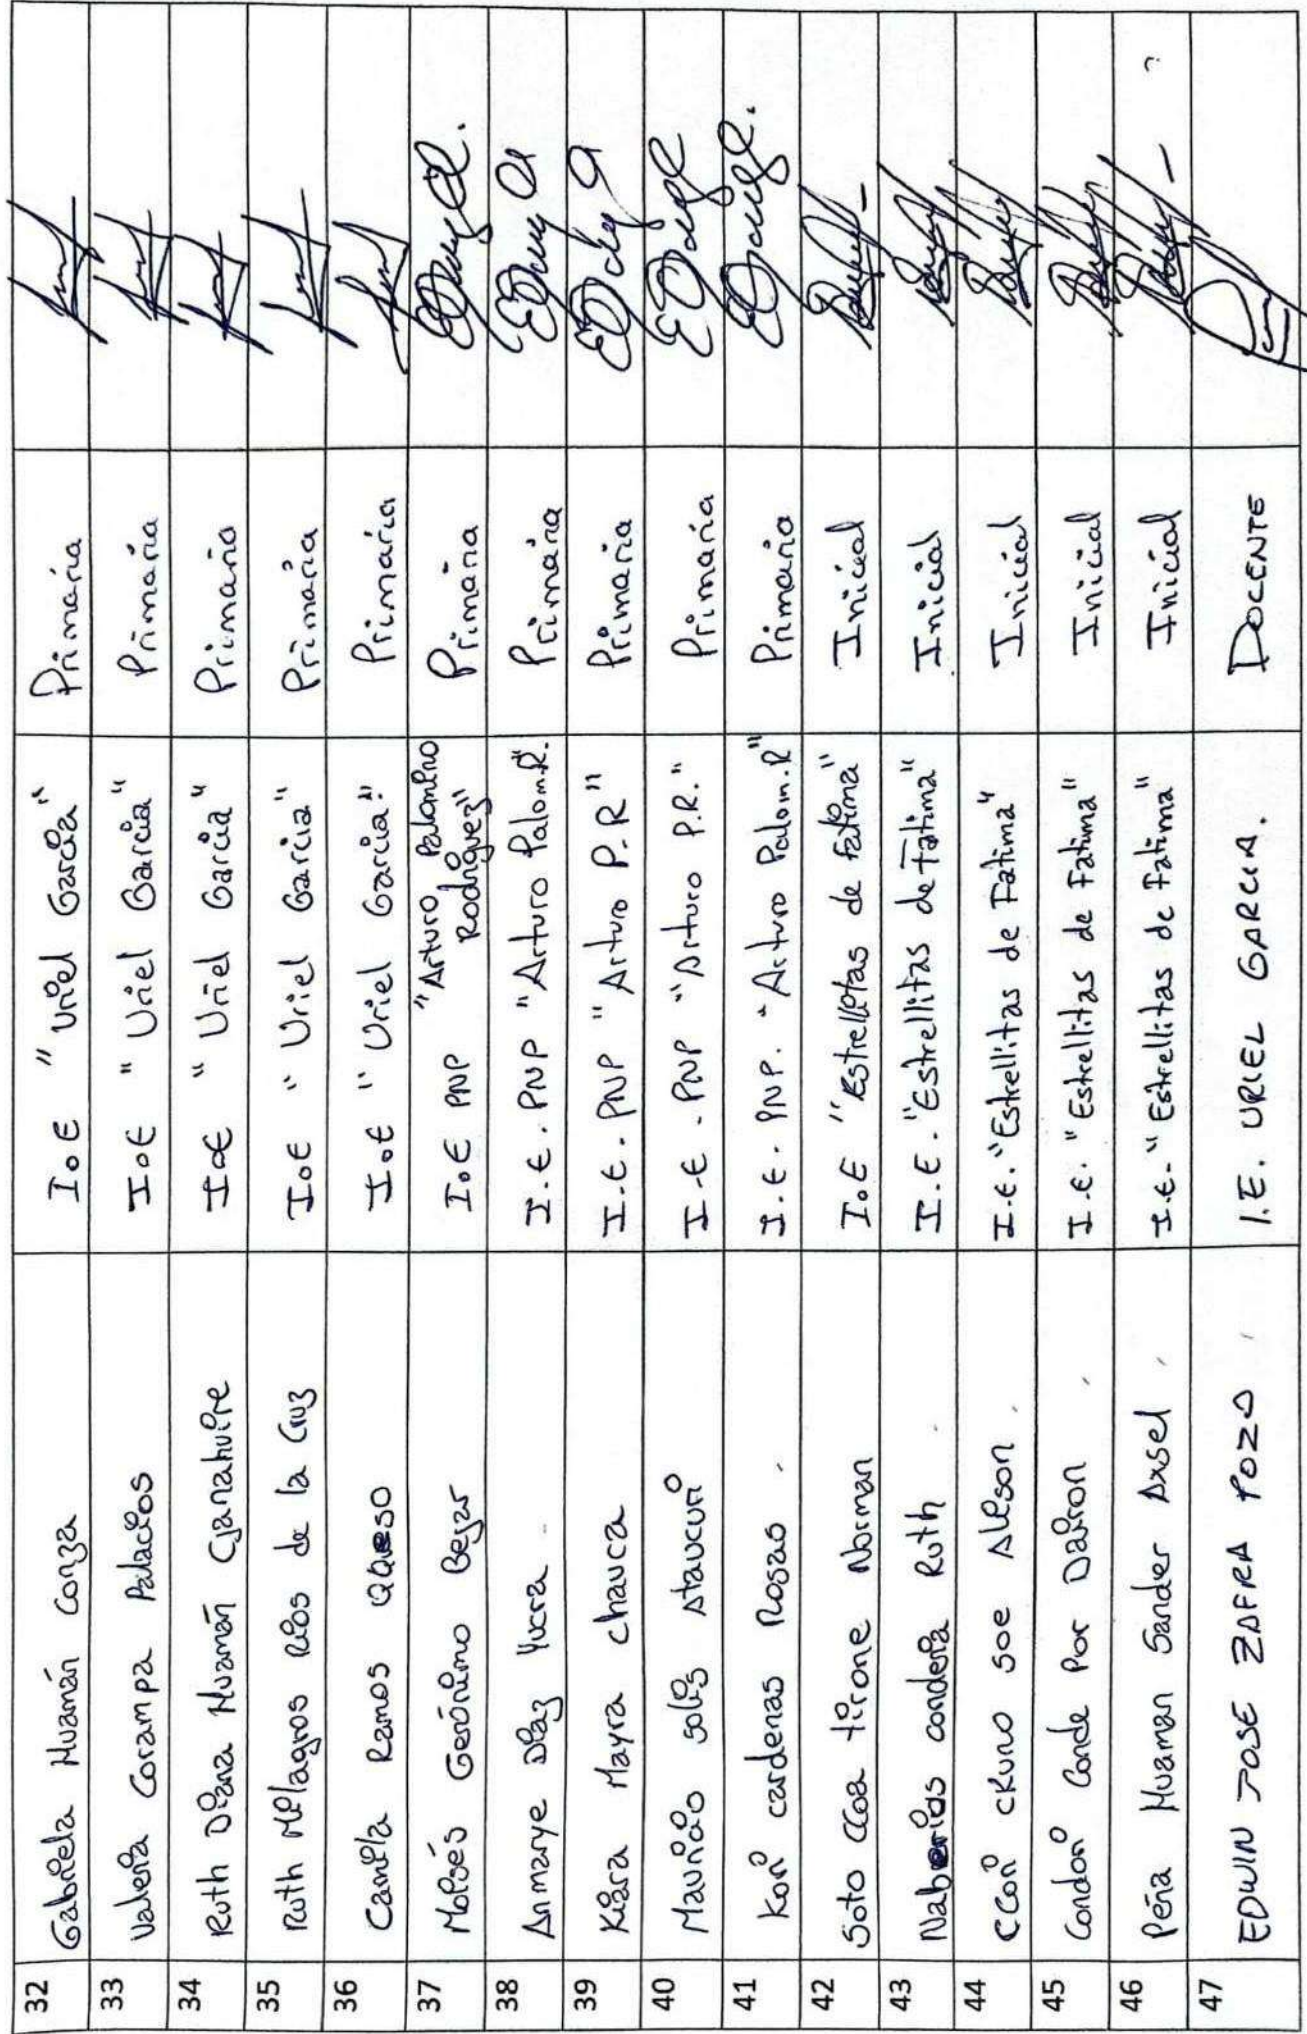 32 Gabriela Huamán Conza I.E "Uriel García" Primaria
33 Valeria Corampa Palacios I.E "Uriel Garcia" Primaria
34 Ruth Diana Huamán Cjanahuire I.E "Uriel Garcia" Primaria
35 Ruth Milagros Rios de la Cruz I.E "Uriel Garcia" Primaria
36 Camila Ramos Qqueso I.E "Uriel Garcia" Primaria
37 Moisés Gerónimo Bejar I.E PNP "Arturo Palomino Rodriguez" Primaria
38 Anmarye Diaz Yucra I.E. PNP "Arturo Palom.R". Primaria
39 Kiara Mayra Chauca I.E. PNP "Arturo P.R" Primaria
40 Mauricio Solis Ataucuri I.E. PNP "Arturo P.R." Primaria
41 Kori cardenas Rosas I.E. PNP. "Arturo Palom.R" Primaria
42 Soto Ccoa tirone Norman I.E "Estrellitas de Fatima" Inicial
43 Naberios conderia Ruth I.E. "Estrellitas de Fatima" Inicial
44 CCori ckuno soe Aleson I.E. "Estrellitas de Fatima" Inicial
45 Condori Conde Por Dairon I.E. "Estrellitas de Fatima" Inicial
46 Peña Huaman Sander Axsel I.E. "Estrellitas de Fatima" Inicial
47 EDWIN JOSE ZAFRA POZO I.E. URIEL GARCIA. DOCENTE